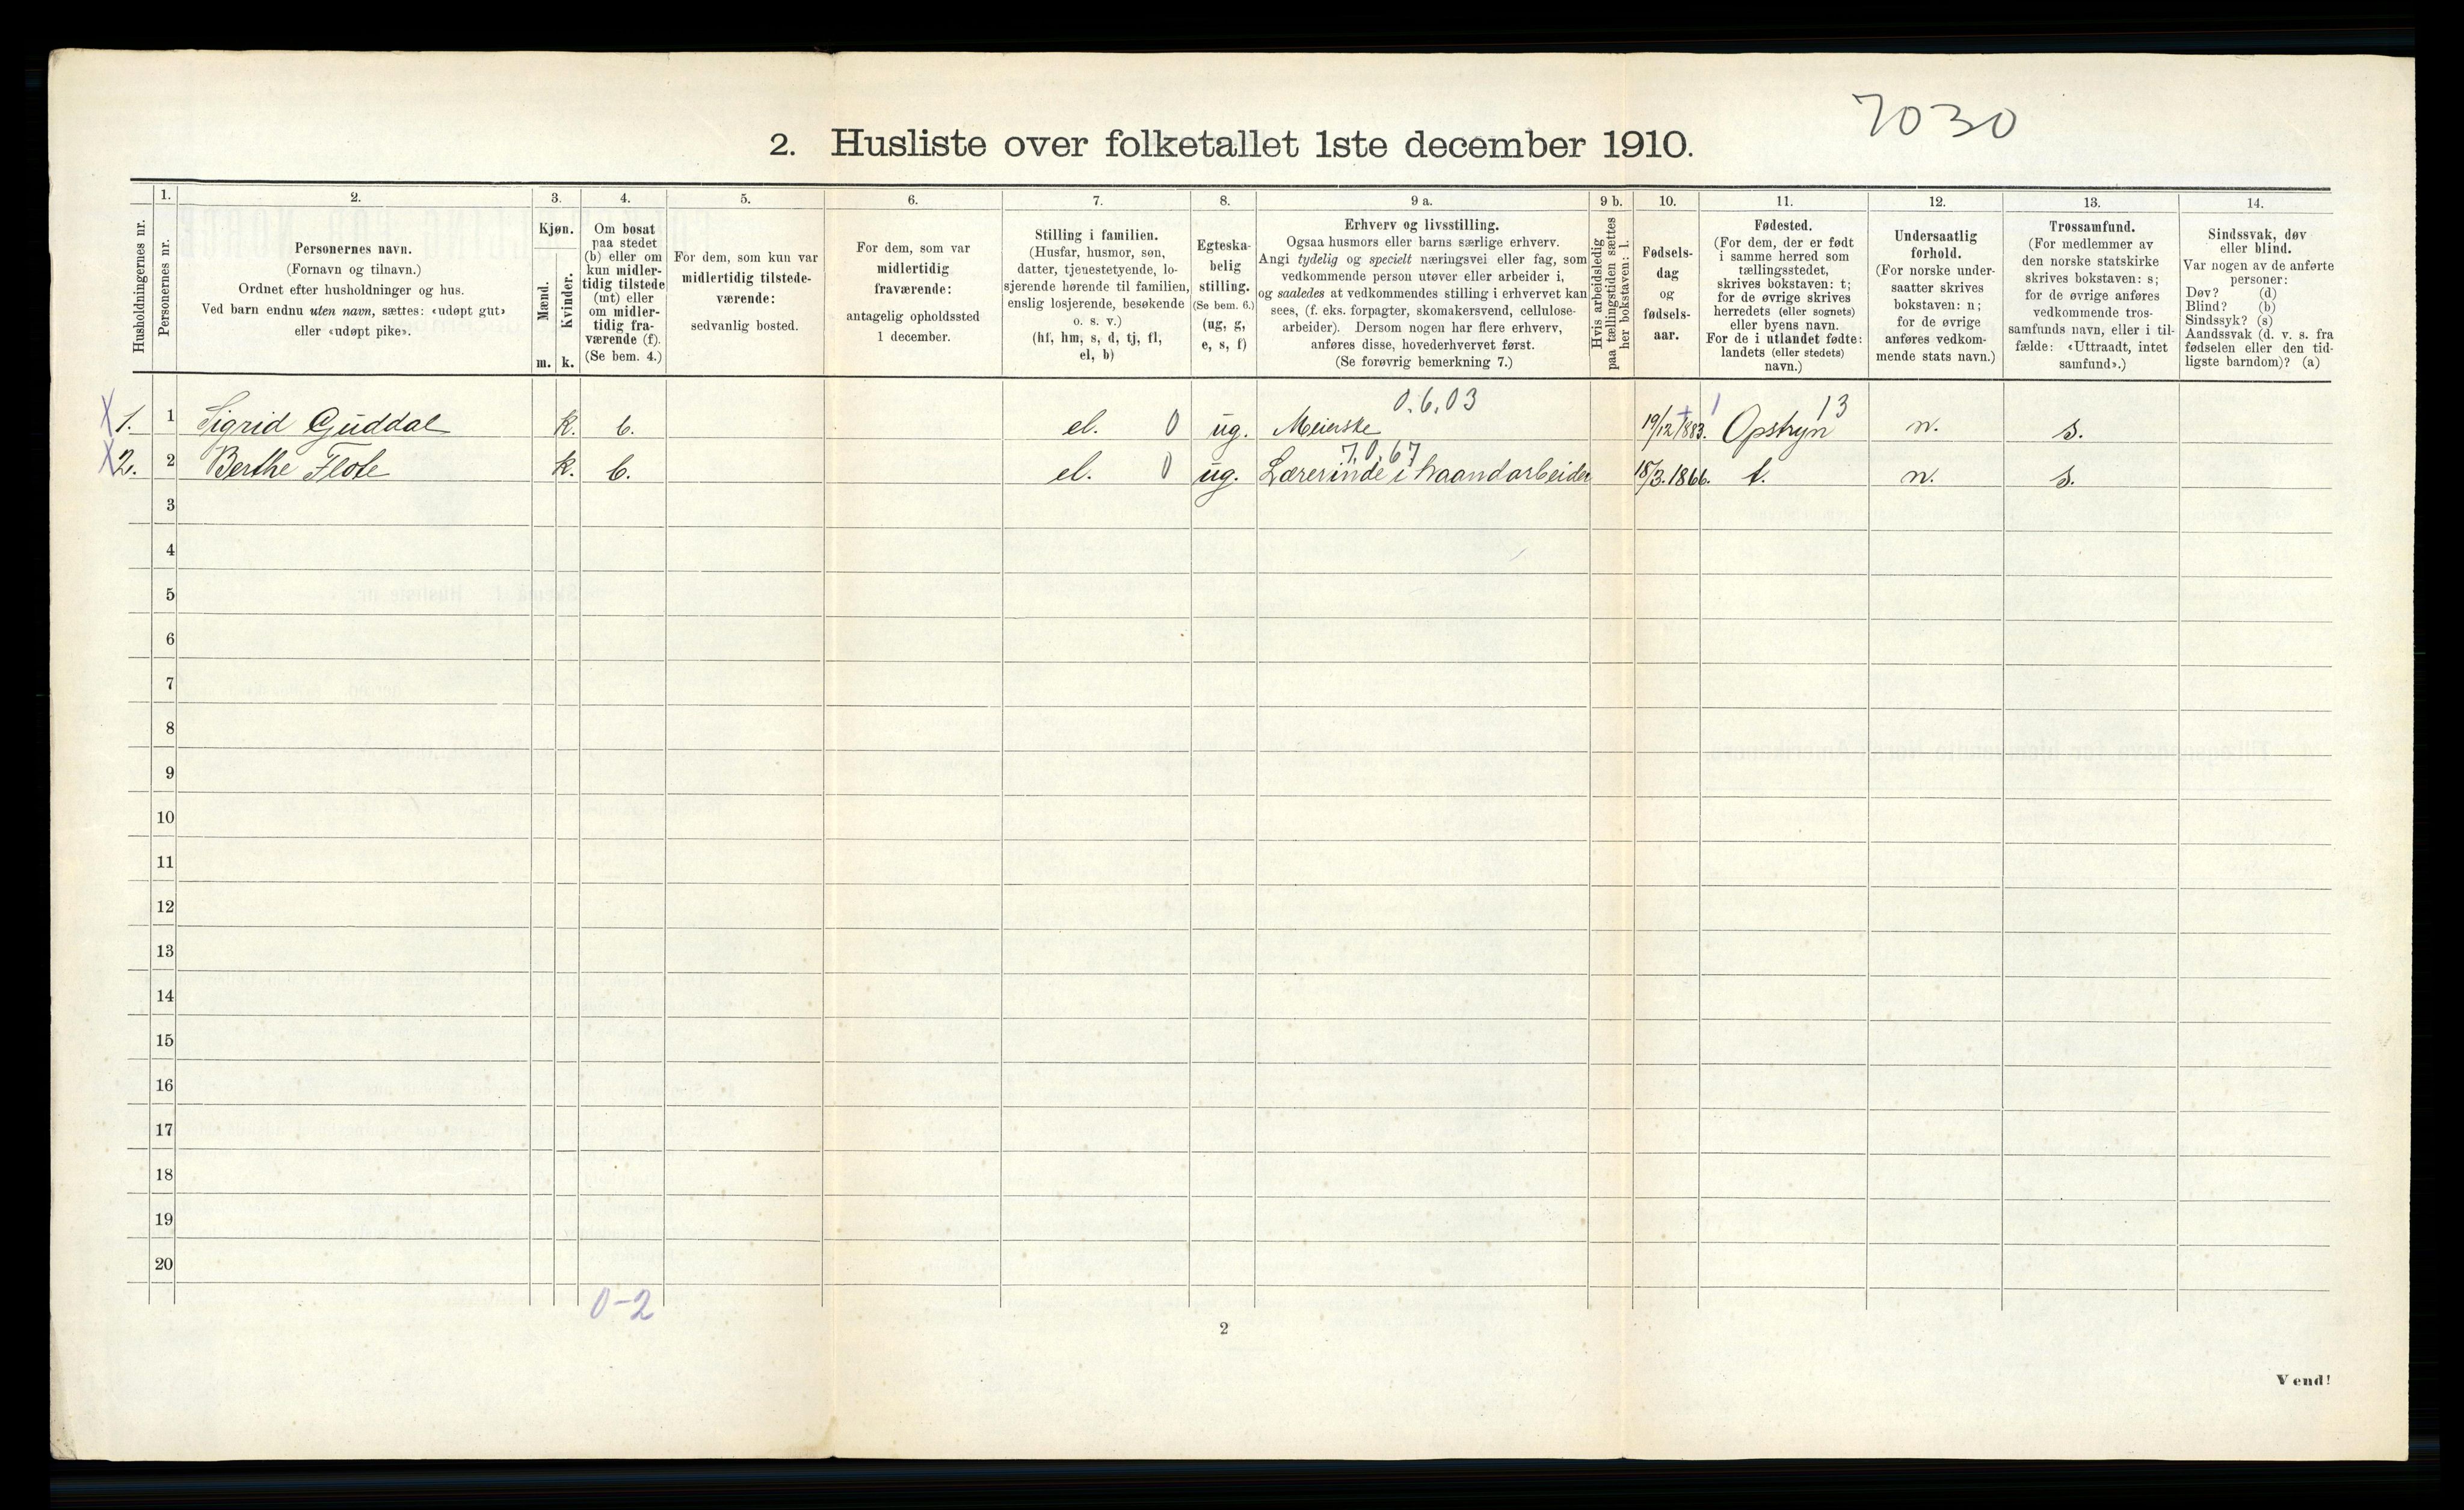 7030
2. Husliste over folketallet 1ste december 1910.
Husholdningernes nr.
1.
Personernes nr.
2.
Personernes navn.
(Fornavn og tilnavn.)
Ordnet efter husholdninger og hus.
Ved barn endnu uten navn, sættes: «udøpt gut»
eller «udøpt pike».
3.
Kjøn.
Mænd.
m.
Kvinder.
k.
4.
Om bosat
paa stedet
(b) eller om
kun midler-
tidig tilstede
(mt) eller
om midler-
tidig fra-
værende (f).
(Se bem. 4.)
5.
For dem, som kun var
midlertidig tilstede-
værende:
sedvanlig bosted.
6.
For dem, som var
midlertidig
fraværende:
antagelig opholdssted
1 december.
7.
Stilling i familien.
(Husfar, husmor, søn,
datter, tjenestetyende, lo-
sjerende hørende til familien,
enslig losjerende, besøkende
o. s. v.)
(hf, hm, s, d, tj, fl,
el, b)
8.
Egteska-
belig
stilling.
(Se bem. 6.)
(ug, g,
e, s, f)
9 a.
Erhverv og livsstilling.
Ogsaa husmors eller barns særlige erhverv.
Angi tydelig og specielt næringsvei eller fag, som
vedkommende person utøver eller arbeider i,
og saaledes at vedkommendes stilling i erhvervet kan
sees, (f. eks. forpagter, skomakersvend, cellulose-
arbeider). Dersom nogen har flere erhverv,
anføres disse, hovederhvervet først.
(Se forøvrig bemerkning 7.)
9 b.
Hvis arbeidsledig
paa tællingstiden sættes
her bokstaven: l.
10.
Fødsels-
dag
og
fødsels-
aar.
11.
Fødested.
(For dem, der er født
i samme herred som
tællingsstedet,
skrives bokstaven: t;
for de øvrige skrives
herredets (eller sognets)
eller byens navn.
For de i utlandet fødte:
landets (eller stedets)
navn.)
12.
Undersaatlig
forhold.
(For norske under-
saatter skrives
bokstaven: n;
for de øvrige
anføres vedkom-
mende stats navn.)
13.
Trossamfund.
(For medlemmer av
den norske statskirke
skrives bokstaven: s;
for de øvrige anføres
vedkommende tros-
samfunds navn, eller i til-
fælde: «Uttraadt, intet
samfund».)
14.
Sindssvak, døv
eller blind.
Var nogen av de anførte
personer:
Døv? (d)
Blind? (b)
Sindssyk? (s)
Aandssvak (d. v. s. fra
fødselen eller den tid-
ligste barndom)? (a)
0.6.03 + 1 13
X 1. 1 Sigrid Guddal k. b. el. 0 ug. Meierske 19/12 1883. Opstryn n. s.
7.0.67
X 2. 2 Berthe Flote k. b. el. 0 ug. Lærerinde i haandarbeider 18/3. 1866. t. n. s.
3
4
5
6
7
8
9
10
11
12
13
14
15
16
17
18
19
20
0-2
2
Vend!